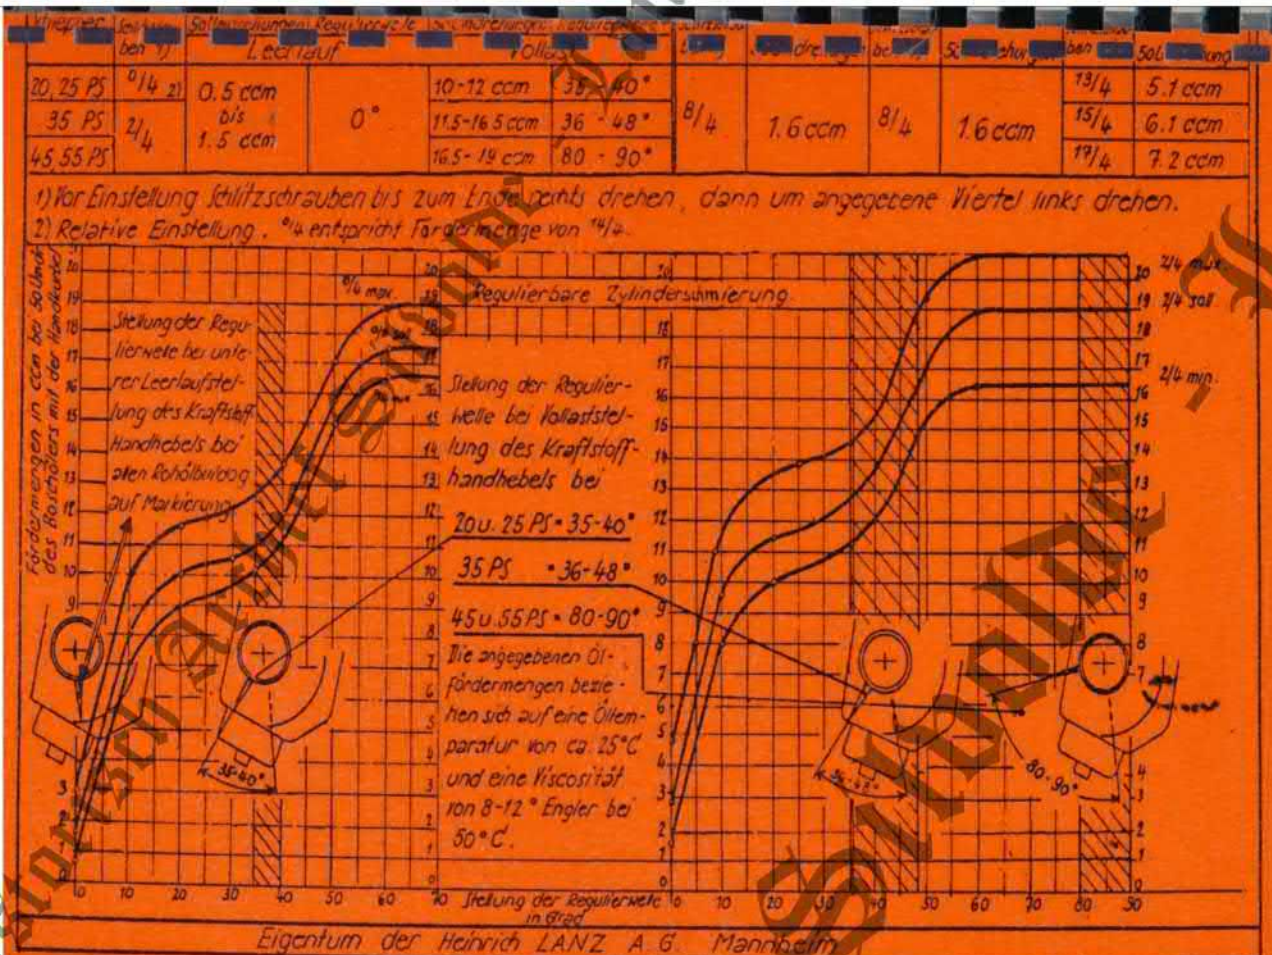 Leerlauf
Vollast
20, 25 PS
0/4 2)
0.5 ccm
bis
1.5 ccm
0°
10-12 ccm
35 - 40°
8/4
1.6 ccm
8/4
1.6 ccm
13/4
5.1 ccm
35 PS
2/4
11.5-16.5 ccm
36 - 48°
15/4
6.1 ccm
45, 55 PS
16.5-19 ccm
80 - 90°
17/4
7.2 ccm
1) Vor Einstellung Schlitzschrauben bis zum Ende rechts drehen, dann um angegebene Viertel links drehen.
2) Relative Einstellung. 0/4 entspricht Fördermenge von 14/4.
Fördermengen in ccm bei 50 Umdr.
des Boschölers mit der Handkurbel
Stellung der Regu-
lierwelle bei unte-
rer Leerlaufstel-
lung des Kraftstoff
Handhebels bei
allen Rohölbulldog
auf Markierung
0/4 max.
Regulierbare Zylinderschmierung.
Stellung der Regulier-
welle bei Vollaststel-
lung des Kraftstoff-
handhebels bei
20 u. 25 PS = 35-40°
35 PS = 36-48°
45 u. 55 PS = 80-90°
Die angegebenen Öl-
fördermengen bezie-
hen sich auf eine Öltem-
paratur von ca. 25°C
und eine Viscosität
von 8-12° Engler bei
50°C.
2/4 max.
2/4 soll
2/4 min.
35-40°
80-90°
0 10 20 30 40 50 60 70
Stellung der Regulierwelle
in Grad
0 10 20 30 40 50 60 70 80 90
Eigentum der Heinrich LANZ A.G. Mannheim